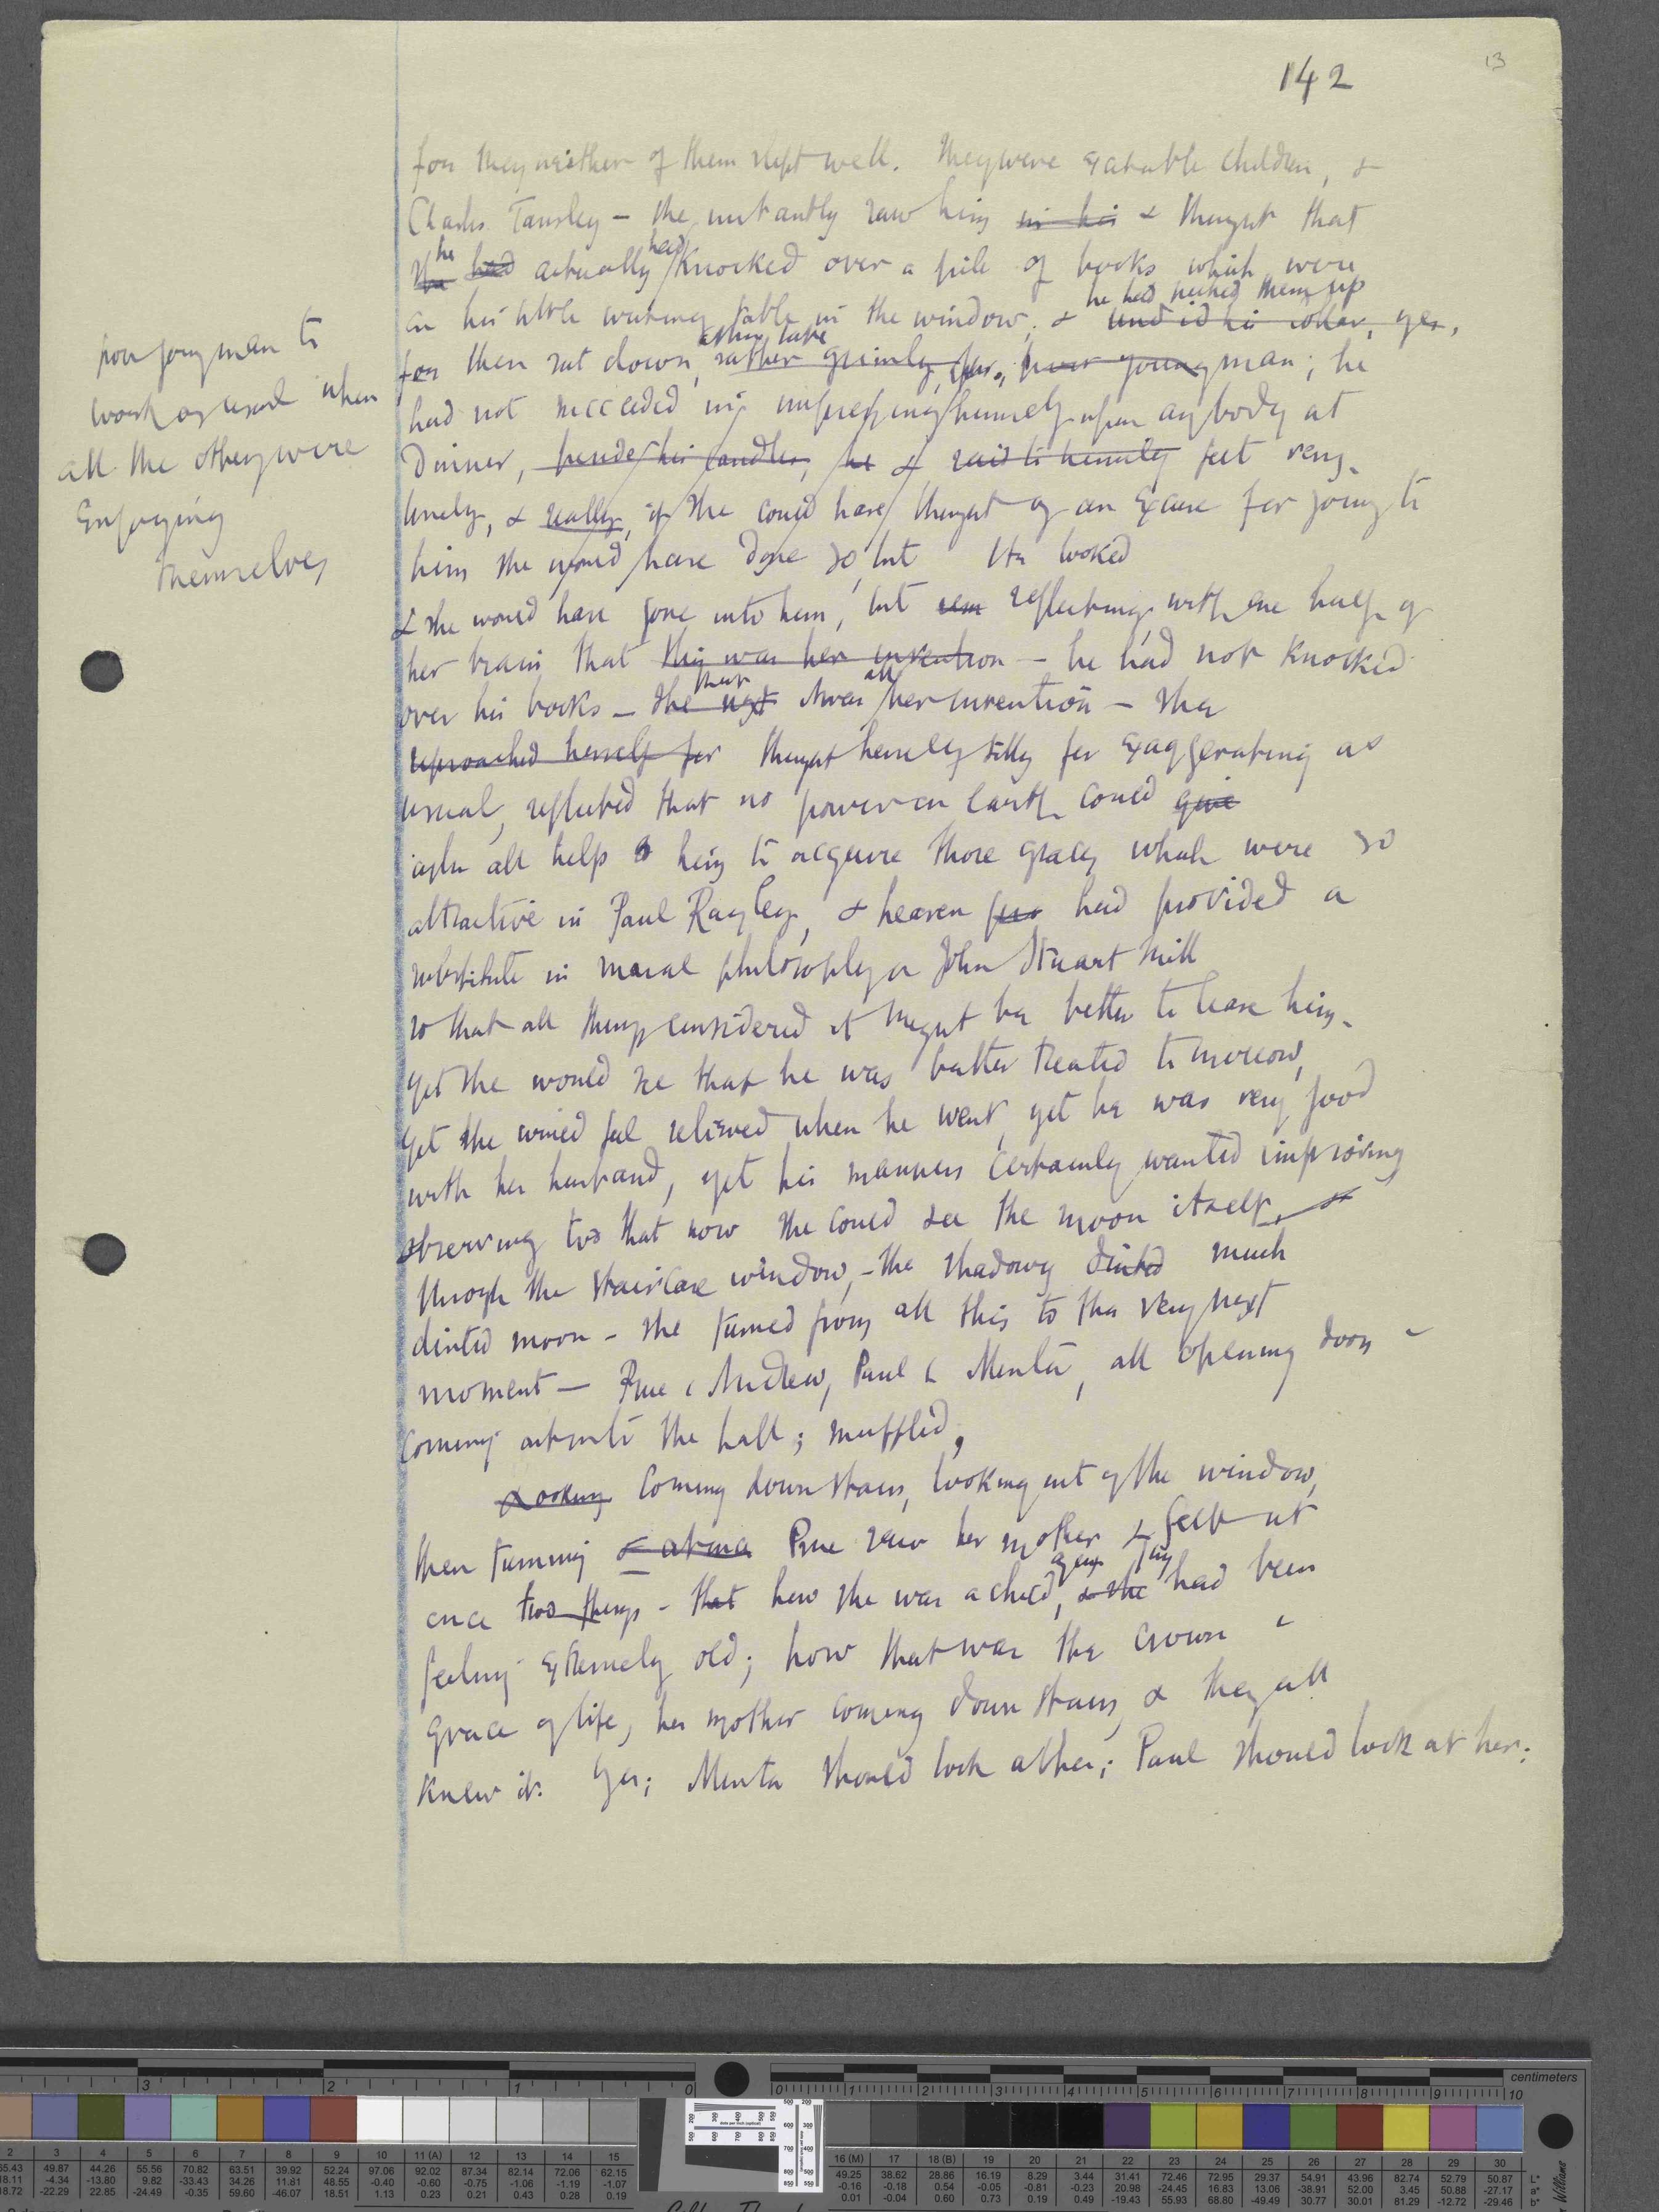 142
13
for they neither of them slept well. They were excitable children, &
Charles Tansley - she instantly saw him in his & thought that
the he had actually had knocked over a pile of books which were
on his little writing table in the window, &
he had picked them up
undid his collar, yes,
then sat down, rather grimly, poor young man; he
had not succeeded in impressing himself upon anybody at
Dinner, beside his candles, he & said to himself felt very
lonely, & really, if she could have thought of an excuse for going to
him she would have done so, but He looked
& she would have gone into him, but reflecting with one half of
her brain that this was her invention - he had not knocked
over his books - that was all her invention - she
reproached herself for thought herself silly for exaggerating as
usual, reflected that no power on earth could give
after all help him to acquire those graces which were so
attractive in Paul Rayley, & heaven had provided a
substitute in moral philosophy or John Stuart Mill
so that all things considered it might be better to leave him.
yet she would see that he was better treated tomorrow,
yet she would feel relieved when he went, yet he was very good
with her husband, yet his manners certainly wanted improving
observing too that now she could see the moon itself
through the staircase window, - the shadowy dinted much
dinted moon - she turned from all this to the very next
moment - Prue & Andrew, Paul & Minta, all opening doors &
coming out into the hall; muffled,
Looking Coming downstairs, looking out of the window,
then turning Prue saw her mother & felt at
once two things - that how she was a child again, & she had been
feeling extremely old; how that was the crown &
grace of life, her mother coming down stairs, & they all
knew it. Yes; Minta should look at her; Paul should look at her;
poor young man to
work as usual when
all the others were
Enjoying
themselves
centimeters